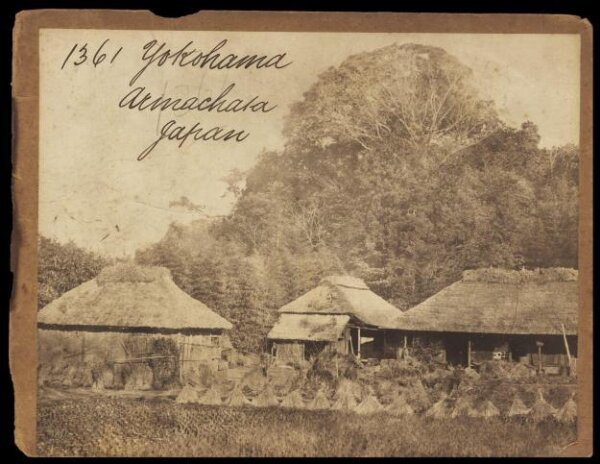 1361 Yokohama
Armachata
Japan